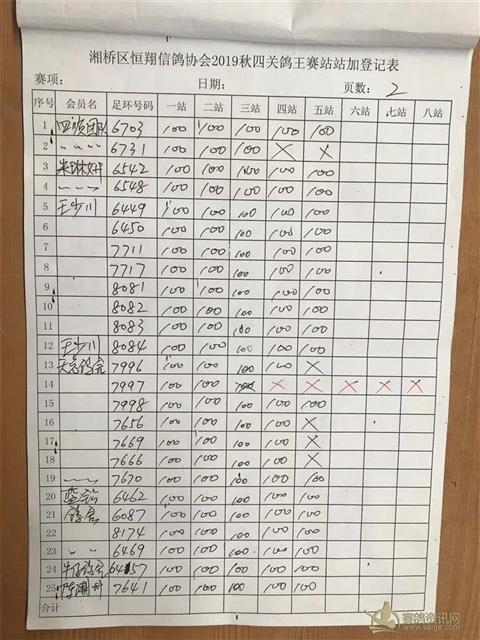 湘桥区恒翔信鸽协会2019秋四关鸽王赛站站加登记表
赛项: 日期: 页数: 2
序号 会员名 足环号码 一站 二站 三站 四站 五站 六站 七站 八站
1 团队 6703 100 100 100 100 100
2 〃 〃 〃 〃 6731 100 100 100 X X
3 6542 100 100 100 100 100
4 6548 100 100 100 100 100
5 王少川 6449 100 100 100 100 100
6 6450 100 100 100 100 100
7 7711 100 100 100 100 100
8 7717 100 100 100 100 100
9 8081 100 100 100 100 100
10 8082 100 100 100 100 100
11 8083 100 100 100 100 100
12 王少川 8084 100 100 100 100 100
13 鸽舍 7996 100 100 100 100 X
14 7997 100 100 X X X X X
15 7998 100 100 100 100 100
16 7656 100 100 100 100 X
17 7669 100 100 100 100 X
18 7666 100 100 100 100 X
19 7670 100 100 100 100 100
20 6462 100 100 100 100 100
21 鸽舍 6087 100 100 100 100 100
22 8174 100 100 100 100 100
23 〃 〃 6469 100 100 100 100 100
24 鸽舍 100 100 100 100 100
25 陈潮丹 7641 100 100 100 100 100
合计
赛鸽资讯网
www.saige.com